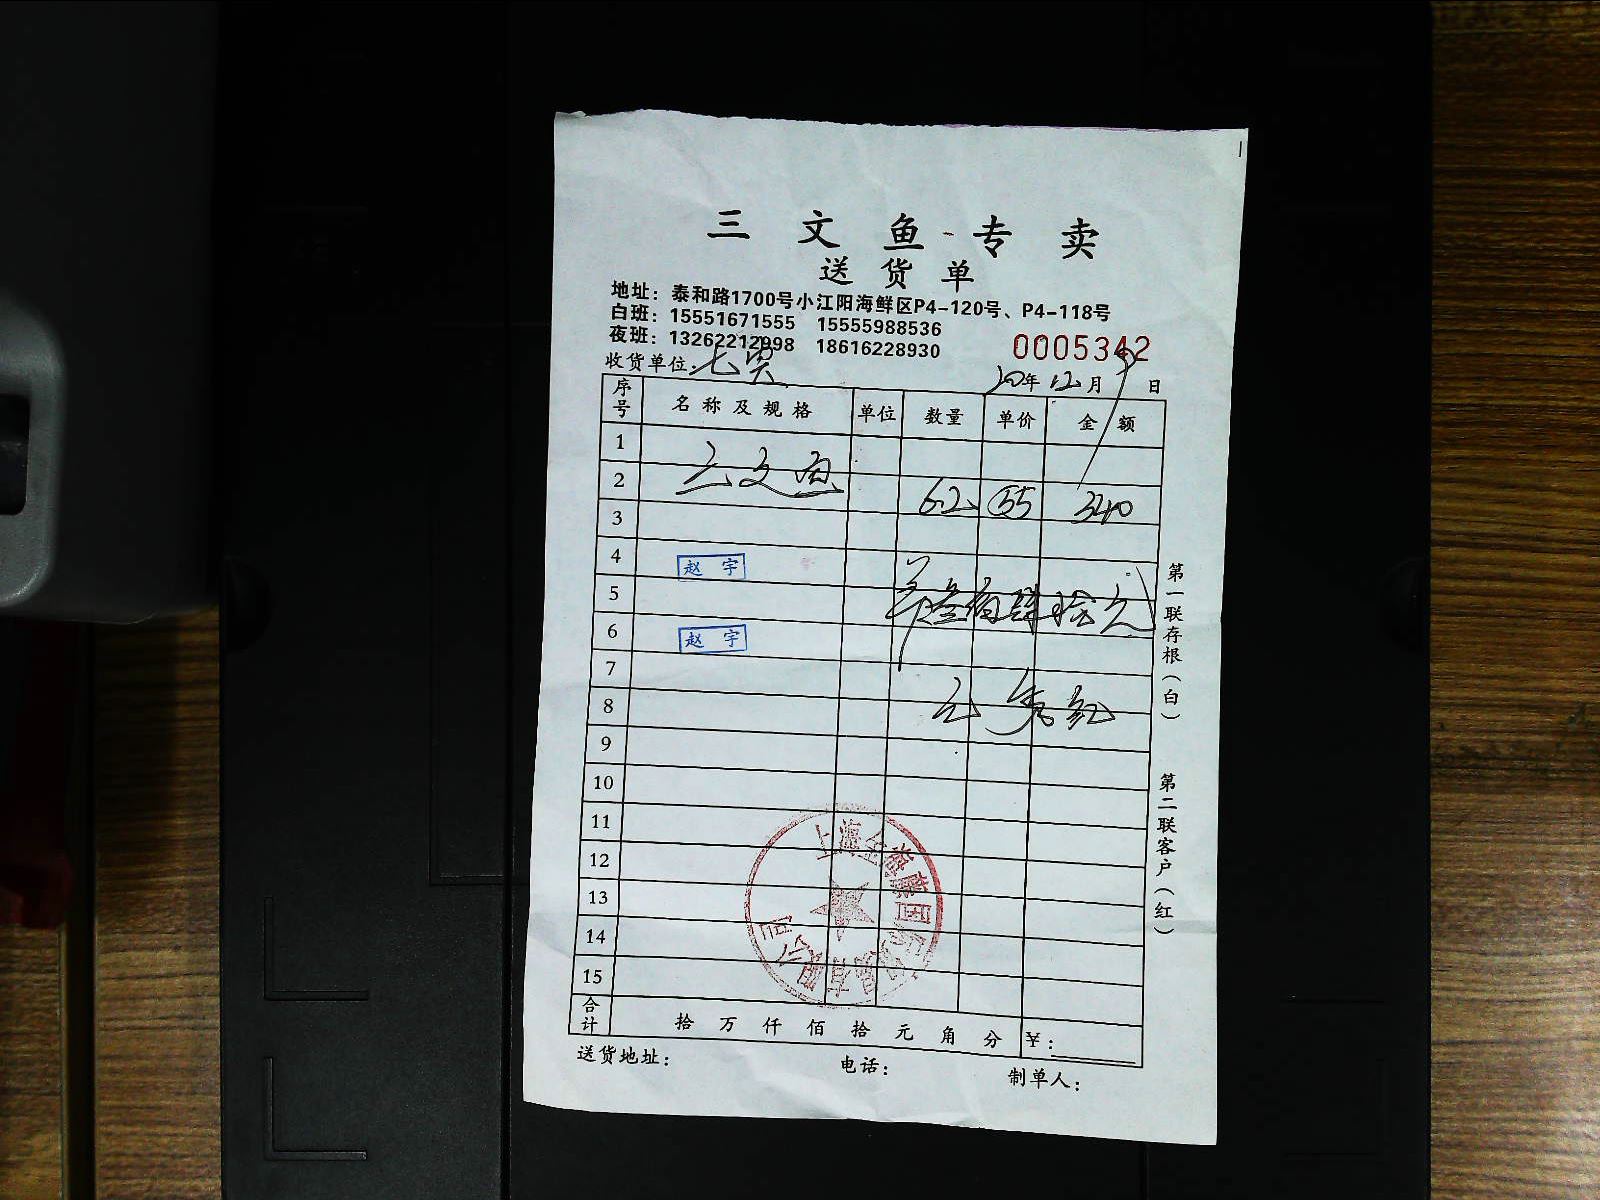 三文鱼专卖
送货单
地址：泰和路1700号小江阳海鲜区P4-120号、P4-118号
白班：15551671555 15555988536
夜班：13262212998 18616228930
0005342
收货单位：七宾 20年12月9日
序号 名称及规格 单位 数量 单价 金额
1
2 三文鱼 6.2 55 340
3
4 赵宇
5 叁佰肆拾元
6 赵宇
7
8
9
10
11
12
13
14
15
合计 拾 万 仟 佰 拾 元 角 分 ¥：
送货地址： 电话： 制单人：
第一联存根（白）
第二联客户（红）